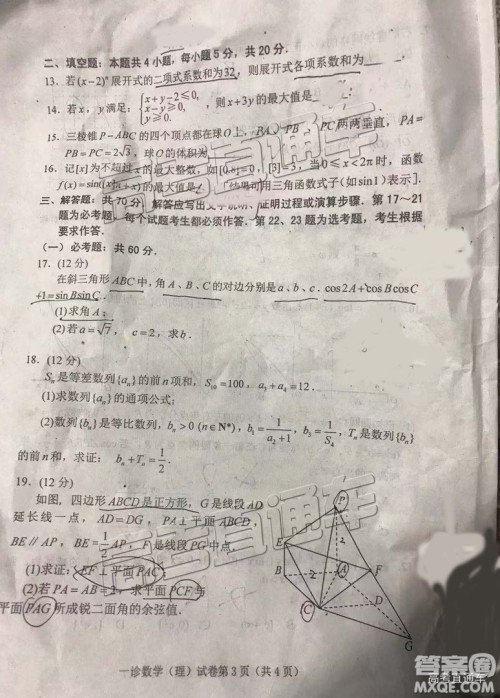 二、填空题：本题共4小题，每小题5分，共20分.
13. 若(x-2)ⁿ展开式的二项式系数和为32，则展开式各项系数和为
14. 若x，y满足：{x+y-2≤0, x-y≥0, y≥0. 则x+3y的最大值是
15. 三棱锥P-ABC的四个顶点都在球O上，PA、PB、PC两两垂直，PA=
PB=PC=2√3，球O的体积为
16. 记[x]为不超过x的最大整数，如[0.8]=0，[3]=3，当0≤x≤2π时，函数
f(x)=sin([x]+x)的最大值是 [结果用三角函数式子(如sin1)表示].
三、解答题：共70分. 解答应写出文字说明、证明过程或演算步骤. 第17～21
题为必考题，每个试题考生都必须作答. 第22、23题为选考题，考生根据
要求作答.
(一) 必考题：共60分.
17. (12分)
在斜三角形ABC中，角A、B、C的对边分别是a、b、c. cos2A+cosBcosC
+1=sinBsinC.
(1)求角A；
(2)若a=√7，c=2，求b.
18. (12分)
Sₙ是等差数列{aₙ}的前n项和，S₁₀=100，a₃+a₄=12.
(1)求数列{aₙ}的通项公式；
(2)数列{bₙ}是等比数列，bₙ>0 (n∈N*)，b₁=1/(a₂+1)，b₃=1/S₄，Tₙ为数列{bₙ}
的前n和，求证：bₙ+Tₙ=1/2.
19. (12分)
如图，四边形ABCD是正方形，G是线段AD
延长线一点，AD=DG，PA⊥平面ABCD，
BE∥AP，BE=1/2 AP，F是线段PG中点.
(1)求证：EF⊥平面PAC；
(2)若PA=AB=，求平面PCF与
平面PAG所成锐二面角的余弦值.
P
E
B
2
A
F
C
D
G
一诊数学（理）试卷第3页（共4页）
高考直通车
答案圈
MXQE.COM
高考直通车